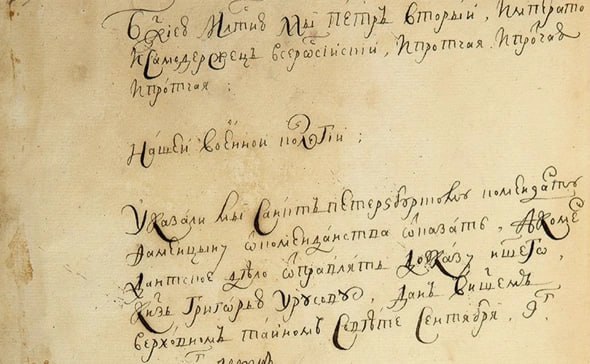 Бж҃иеѵ Млтию Мы Петръ Вторый, Императо
и самодержецъ всеросийскии, и протчая и протчая
и протчая:
Нашей военной колегии:
Указали мы Санктъ петерзбургскому коменданту
 ѿ комендантства ѿказать, а коме
дантское дѣло ѿправлять до указу ншего,
Кнзь Григорью Урусову, данъ в нашемъ
верховномъ тайномъ Совѣте Сентября, 9г